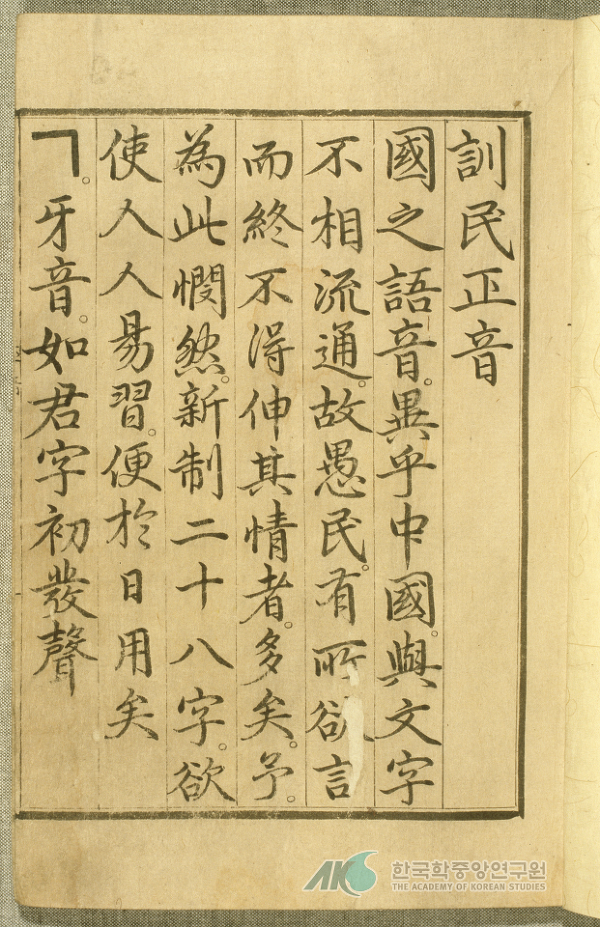 訓民正音
國之語音。異乎中國。與文字
不相流通。故愚民。有所欲言
而終不得伸其情者。多矣。予。
為此憫然。新制二十八字。欲
使人人易習。便於日用矣
ㄱ。牙音。如君字初發聲
한국학중앙연구원
THE ACADEMY OF KOREAN STUDIES